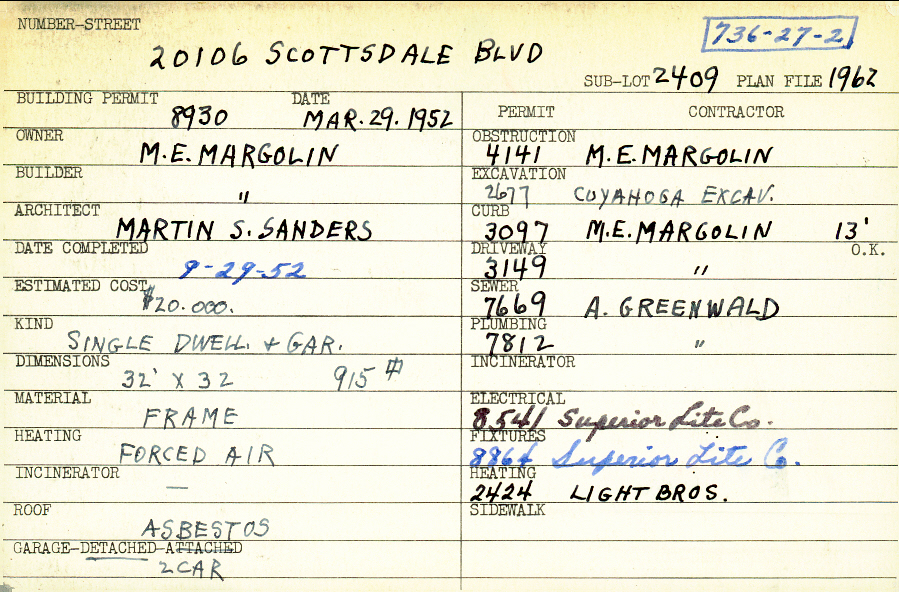 NUMBER-STREET
20106 SCOTTSDALE BLVD
736-27-2
SUB-LOT 2409 PLAN FILE 1962
BUILDING PERMIT DATE
8930 MAR. 29. 1952
OWNER
M.E. MARGOLIN
BUILDER
"
ARCHITECT
MARTIN S. SANDERS
DATE COMPLETED
9-29-52
ESTIMATED COST
$20.000.
KIND
SINGLE DWELL. + GAR.
DIMENSIONS
32' X 32 915 #
MATERIAL
FRAME
HEATING
FORCED AIR
INCINERATOR
—
ROOF
ASBESTOS
GARAGE-DETACHED-ATTACHED
2 CAR
PERMIT CONTRACTOR
OBSTRUCTION
4141 M.E. MARGOLIN
EXCAVATION
2677 CUYAHOGA EXCAV.
CURB
3097 M.E. MARGOLIN 13'
O.K.
DRIVEWAY
3149 "
SEWER
7669 A. GREENWALD
PLUMBING
7812 "
INCINERATOR
ELECTRICAL
8541 Superior Lite Co.
FIXTURES
8864 Superior Lite Co.
HEATING
2424 LIGHT BROS.
SIDEWALK